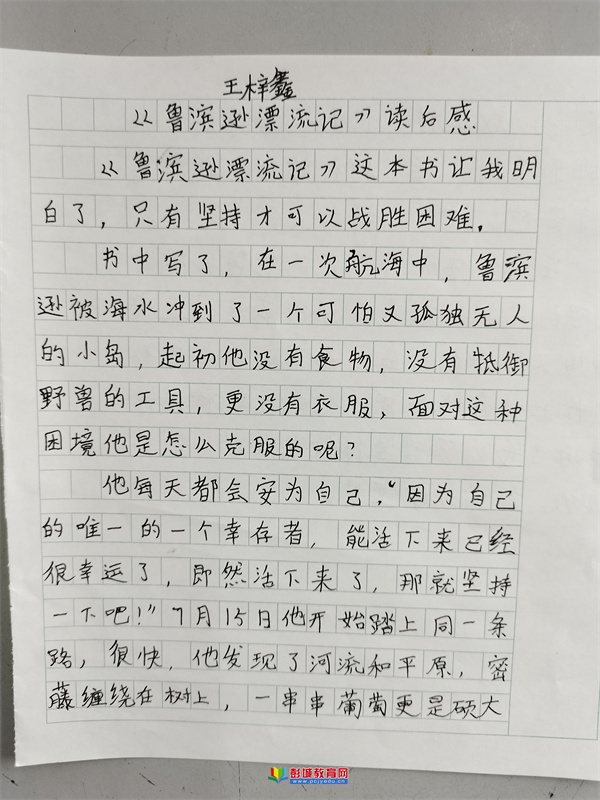 王梓鑫
《鲁滨逊漂流记》读后感
《鲁滨逊漂流记》这本书让我明
白了，只有坚持才可以战胜困难。
书中写了，在一次航海中，鲁滨
逊被海水冲到了一个可怕又孤独无人
的小岛，起初他没有食物，没有抵御
野兽的工具，更没有衣服，面对这种
困境他是怎么克服的呢？
他每天都会安为自己，“因为自己
的唯一的一个幸存者，能活下来已经
很幸运了，即然活下来了，那就坚持
一下吧！”7月15日他开始踏上同一条
路，很快，他发现了河流和平原，密
藤缠绕在树上，一串串葡萄更是硕大
彭城教育网
www.pcjyedu.cn